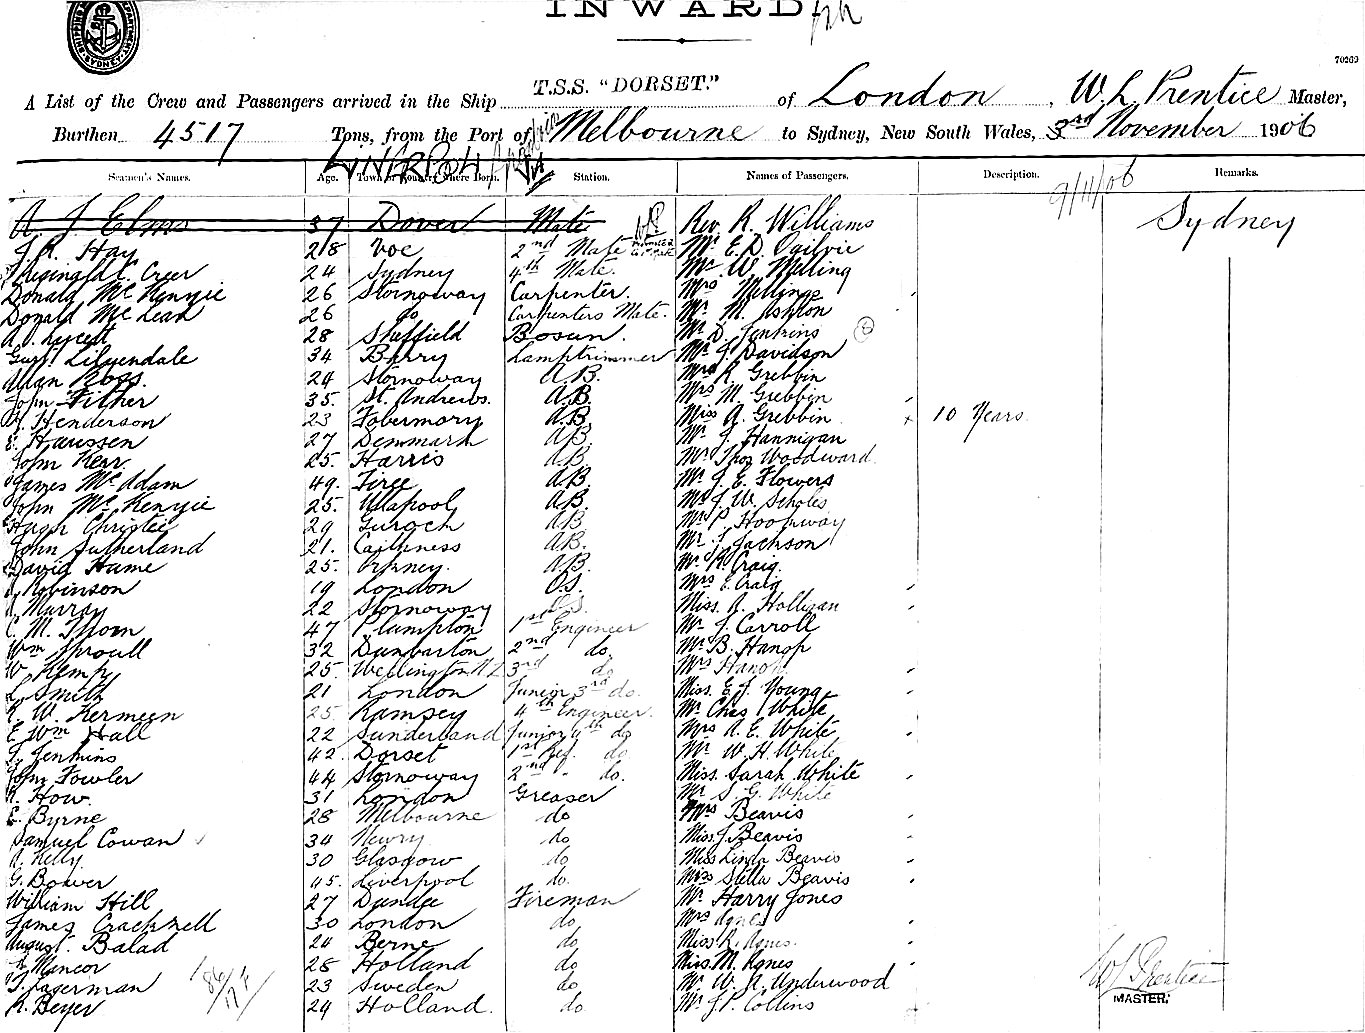 INWARD.
70269
A List of the Crew and Passengers arrived in the Ship T.S.S. "DORSET." of London, W. L. Prentice Master,
Burthen 4517 Tons, from the Port of Melbourne to Sydney, New South Wales, 3rd November 1906
Seamen's Names. Age. Town or Country where Born. Station. Names of Passengers. Description. Remarks.
9/11/06
A. J. Elms 37 Dover Mate Rev. R. Williams Sydney
Hay 28 Voe 2nd Mate Mr E. D. Ogilvie
Reginald C. Creer 24 Sydney 4th Mate. Mr W. Melling
Donald McKenzie 26 Stornoway Carpenter. Mrs Mellings
Donald McLean 26 do Carpenters Mate. Mr M. Ashton
28 Sheffield Bosun. Mr D. Jenkins
Gust Liljendale 34 Barry Lamptrimmer Mr J. Davidson
Allan Ross. 24 Stornoway A.B. Mrs R. Grebbin
John Fisher 35. St. Andrews. A.B. Mrs M. Grebbin
Henderson 23 Tobermory A.B. Miss A. Grebbin x 10 Years.
E. Haussen 27 Denmark A.B. Mr J. Hannigan
John Kerr. 25. Harris A.B. Mr Thos Woodward.
James McAdam 49. Tiree A.B. Mr J. E. Flowers
John McKenzie 25. Ullapool A.B. Mr J. W. Scholes
Hugh Christie 29 Gurock A.B.
John Sutherland 21. Caithness A.B. Mr Jackson
David Hume 25. Orkney. A.B. Mr R. Craig.
Robinson 19 London O.S. Mrs E. Craig
Murray 22 Stornoway O.S. Miss. A. Holligan
C. M. Thom 47 Plumpton 1st Engineer Mr J. Carroll
Wm Sproull 32 Dunbarton 2nd do. Mr B. Hanop
W. Kemp 25. Wellington N.Z 3rd do Mrs Hanop.
L. Smith 21 London Junior 3rd do. Miss. E. J. Young
W. Kermeen 25. Ramsey 4th Engineer. Mr Chas White
E. Wm Hall 22 Sunderland Junior 4th do Mrs A. E. White
J. Jenkins 42. Dorset 1st Ref. do Mr W. H. White
John Fowler 44 Stornoway 2nd " do. Miss. Sarah White
How. 31 London Greaser Mr S. G. White
E. Byrne 28 Melbourne do Mrs Beavis
Samuel Cowan 34 Newry do Miss. J. Beavis
Kelly 30 Glasgow do Miss Linda Beavis
G. Bower 45. Liverpool do. Miss Stella Beavis
William Hill 27 Dundee Fireman Mr Harry Jones
James Cracknell 30 London do Mrs Agnes
August Balad 24 Berne do Miss R. Agnes.
Mancor 28 Holland do Miss. M. Agnes
Jagerman 23 Sweden do Mr W. A. Underwood
R. Beyer 24 Holland. do. Mr J. P. Collins
W L Prentice
MASTER.